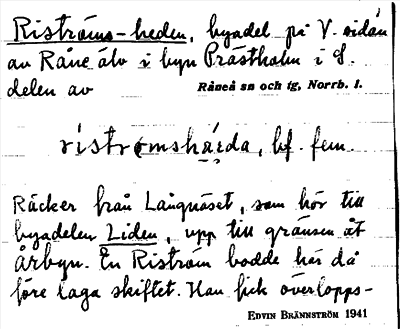 Riströms-heden, byadel på V. sidan
av Råne älv i byn Prästholm i S.
delen av Råneå sn och tg, Norrb. l.
ristrǫmshäda, bf. fem.
Räcker från Långnäset, som hör till
byadelen Liden, upp till gränsen åt
Årbyn. En Riström bodde här då
före laga skiftet. Han fick överlopps-
EDVIN BRÄNNSTRÖM 1941